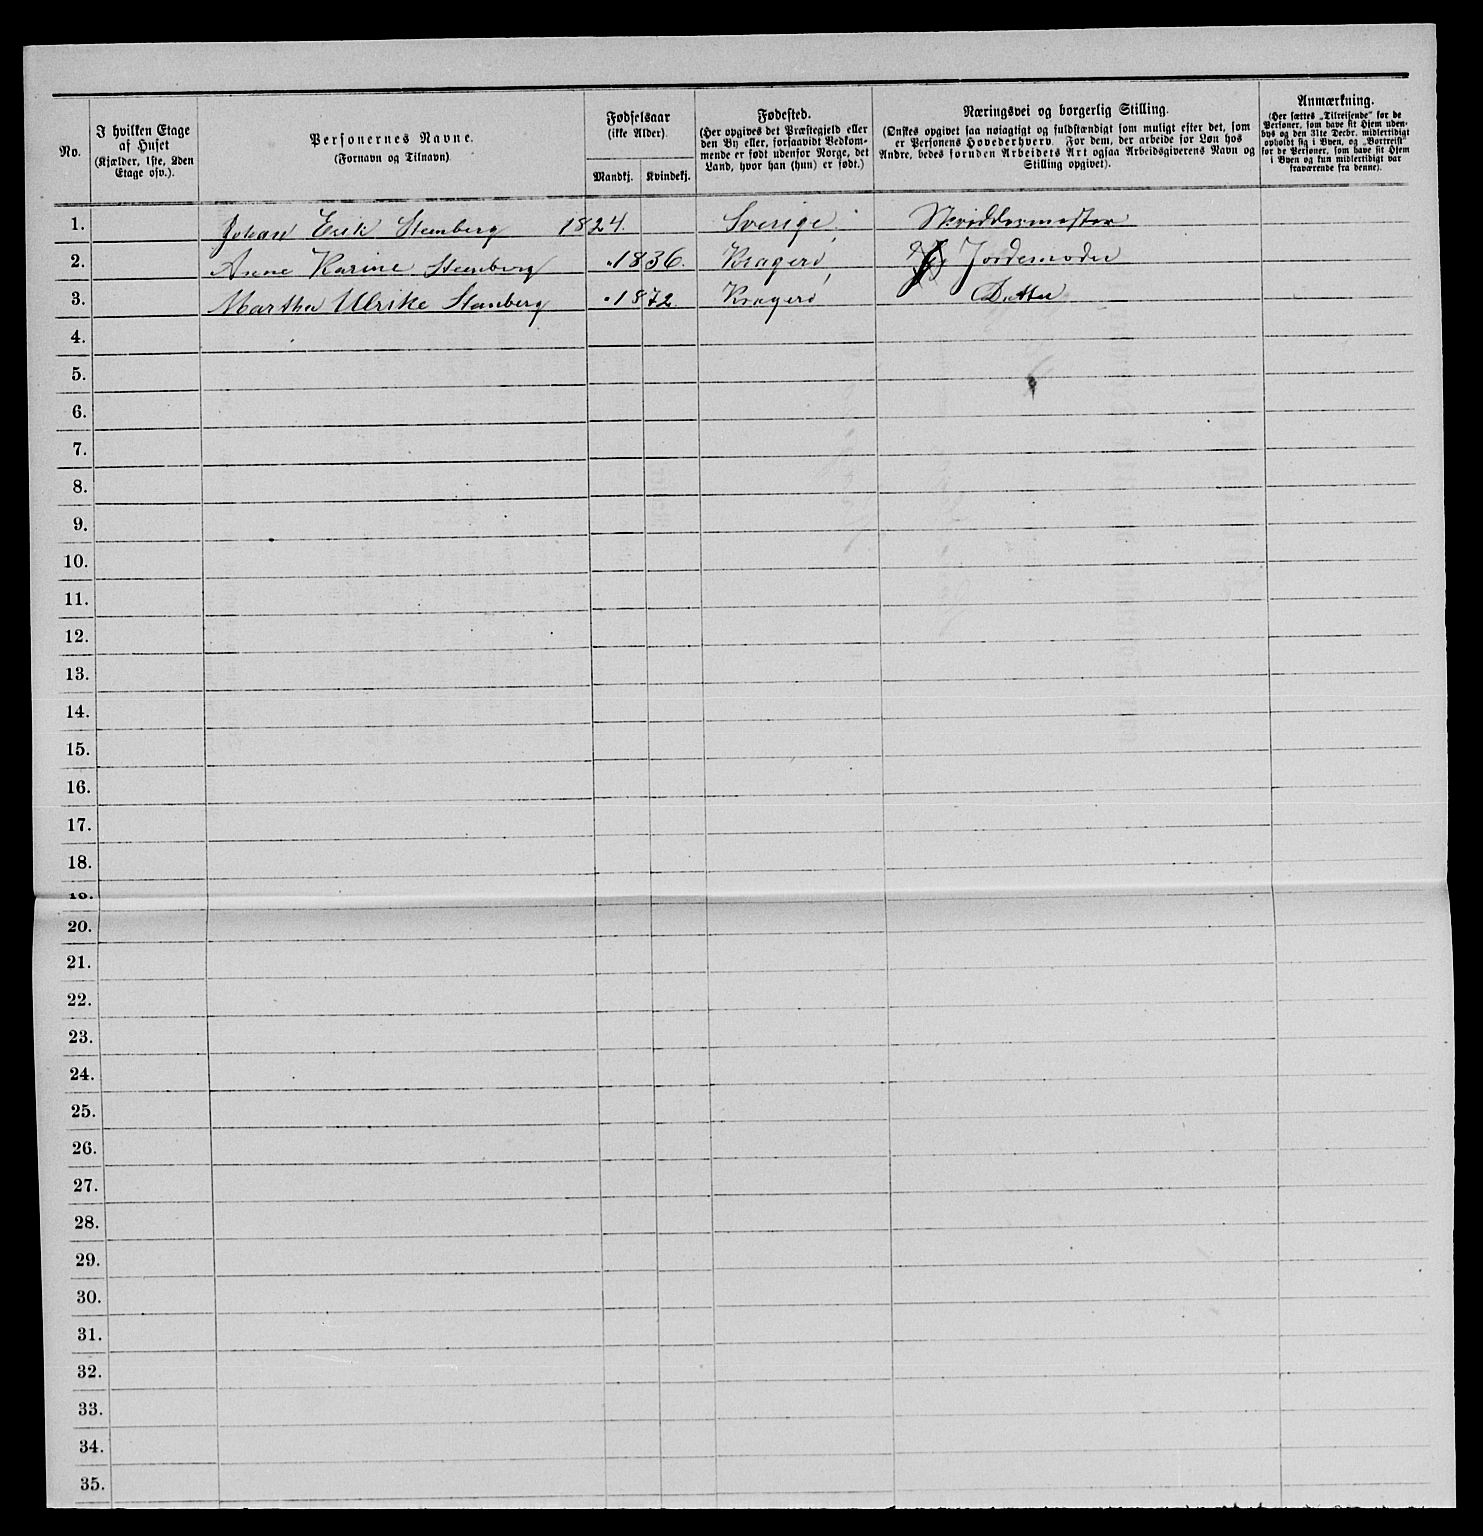 No.
I hvilken Etage af Huset (Kjælder, 1ste, 2den Etage osv.).
Personernes Navne. (Fornavn og Tilnavn)
Fødselsaar (ikke Alder). Mandkj. Kvindekj.
Fødested. (Her opgives det Præstegjeld eller den By eller, forsaavidt Vedkommende er født udenfor Norge, det Land, hvor han (hun) er født.)
Næringsvei og borgerlig Stilling. (Ønskes opgivet saa nøiagtigt og fuldstændigt som muligt efter det, som er Personens Hovederhverv. For dem, der arbeide for Løn hos Andre, bedes foruden Arbeidets Art ogsaa Arbeidsgiverens Navn og Stilling opgivet).
Anmærkning. (Her sættes „Tilreisende“ for de Personer, som have sit Hjem udenbys og den 31te Decbr. midlertidigt opholdt sig i Byen, og „Bortreist“ for de Personer, som have sit Hjem i Byen og kun midlertidigt var fraværende fra denne).
1. Johan Erik Steenberg 1824. Sverige, Skräddermester
2. Anne Karine Steenberg 1836. Kragerö, Jordemoder
3. Marthe Ulrike Stenberg 1872 Kragerö Datter
4.
5.
6.
7.
8.
9.
10.
11.
12.
13.
14.
15.
16.
17.
18.
19.
20.
21.
22.
23.
24.
25.
26.
27.
28.
29.
30.
31.
32.
33.
34.
35.